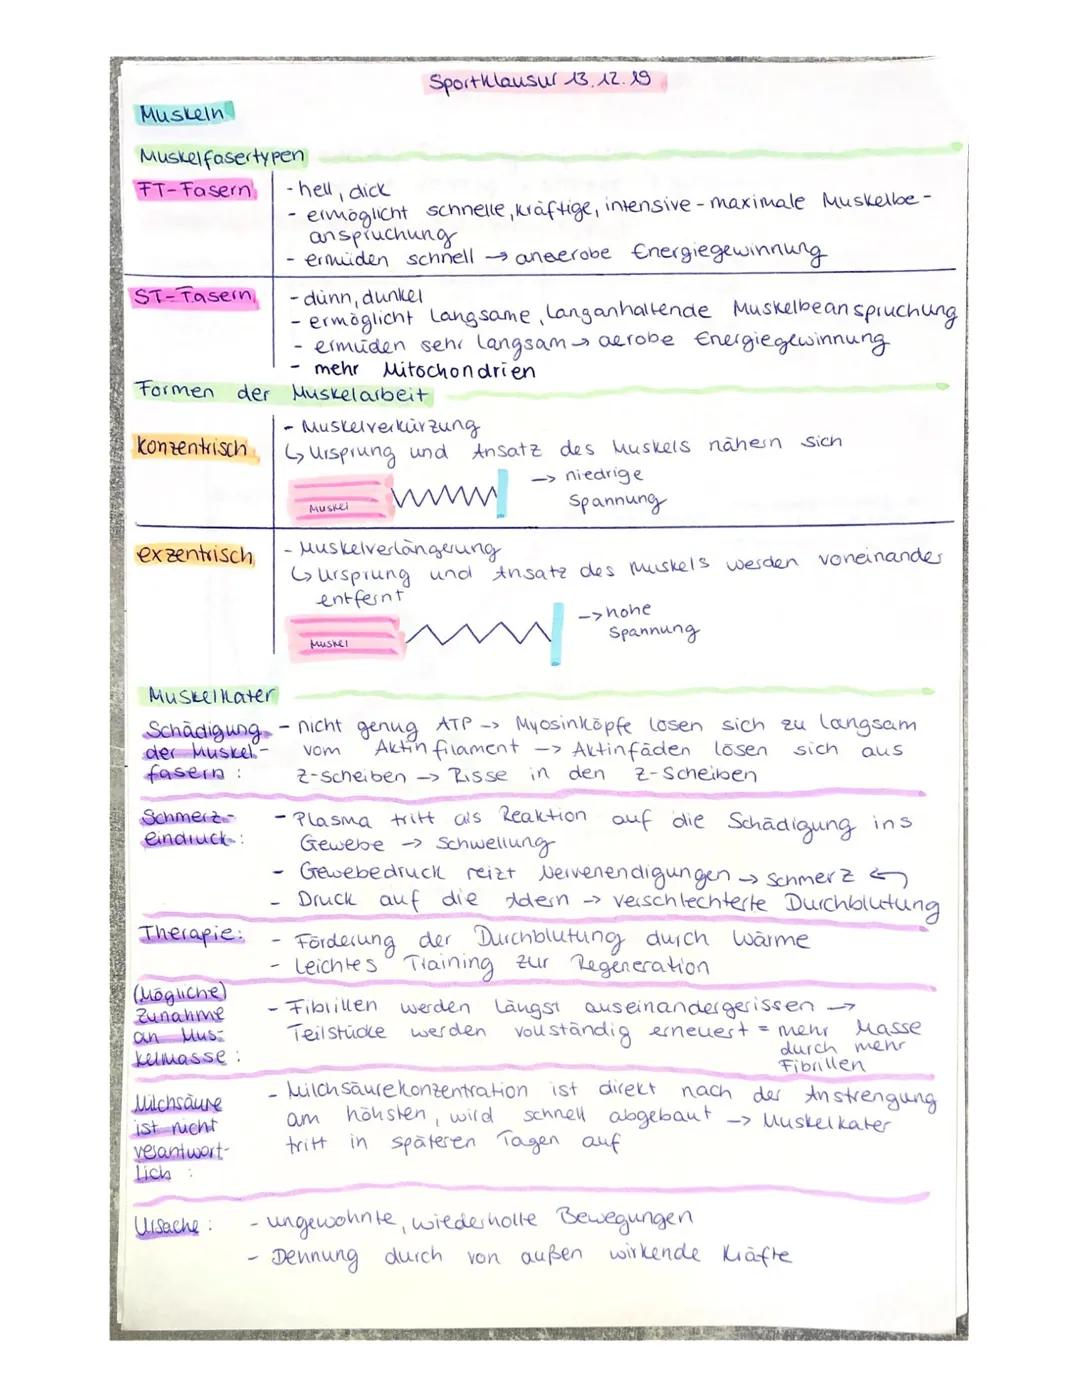 Sportklausur 13.12.19
Muskeln
Muskelfasertypen
FT-Fasern
- hell, dick
- ermöglicht schnelle, kräftige, intensive - maximale Muskelbe-
anspruchung
- ermüden schnell → anaerobe Energiegewinnung
ST-Fasern
- dünn, dunkel
- ermöglicht langsame, langanhaltende Muskelbeanspruchung
- ermüden sehr langsam → aerobe Energiegewinnung
- mehr Mitochondrien
Formen der Muskelarbeit
konzentrisch
- Muskelverkürzung
↳ Ursprung und Ansatz des Muskels nähern sich
→ niedrige
Spannung
Muskel
exzentrisch
- Muskelverlängerung
↳ Ursprung und Ansatz des Muskels werden voneinander
entfernt
→ hohe
Spannung
Muskel
Muskelkater
Schädigung
der Muskel-
fasern :
- nicht genug ATP → Myosinköpfe lösen sich zu langsam
vom Aktinfilament → Aktinfäden lösen sich aus
Z-scheiben → Risse in den Z-Scheiben
Schmerz-
eindruck :
- Plasma tritt als Reaktion auf die Schädigung ins
Gewebe → Schwellung
- Gewebedruck reizt Nervenendigungen → Schmerz ↩
- Druck auf die Adern → verschlechterte Durchblutung
Therapie:
- Förderung der Durchblutung durch Wärme
- leichtes Training zur Regeneration
(Mögliche)
Zunahme
an Mus-
kelmasse :
- Fibrillen werden längst auseinandergerissen →
Teilstücke werden vollständig erneuert = mehr Masse
durch mehr
Fibrillen
Milchsäure
ist nicht
verantwort-
lich :
- Milchsäurekonzentration ist direkt nach der Anstrengung
am höhsten, wird schnell abgebaut → Muskelkater
tritt in späteren Tagen auf
Ursache :
- ungewohnte, wiederholte Bewegungen
- Dehnung durch von außen wirkende Kräfte